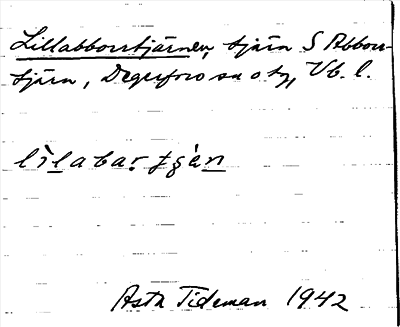 Lillabborrtjärnen, tjärn S Abborr-
tjärn, Degerfors sn o tg, Vb. l.
lìlabartjän
Asta Tideman 1942